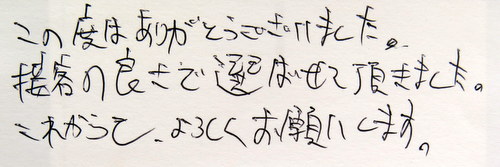 この度はありがとうございました。
接客の良さで選ばせて頂きました。
これからも、よろしくお願いします。